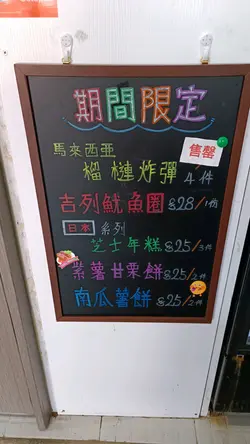 期間限定
馬來西亞
售罄
榴槤炸彈 4件
吉列魷魚圈 $28/1份
日本 系列
芝士年糕 $25/3件
紫薯甘栗餅 $25/2件
南瓜薯餅 $25/2件